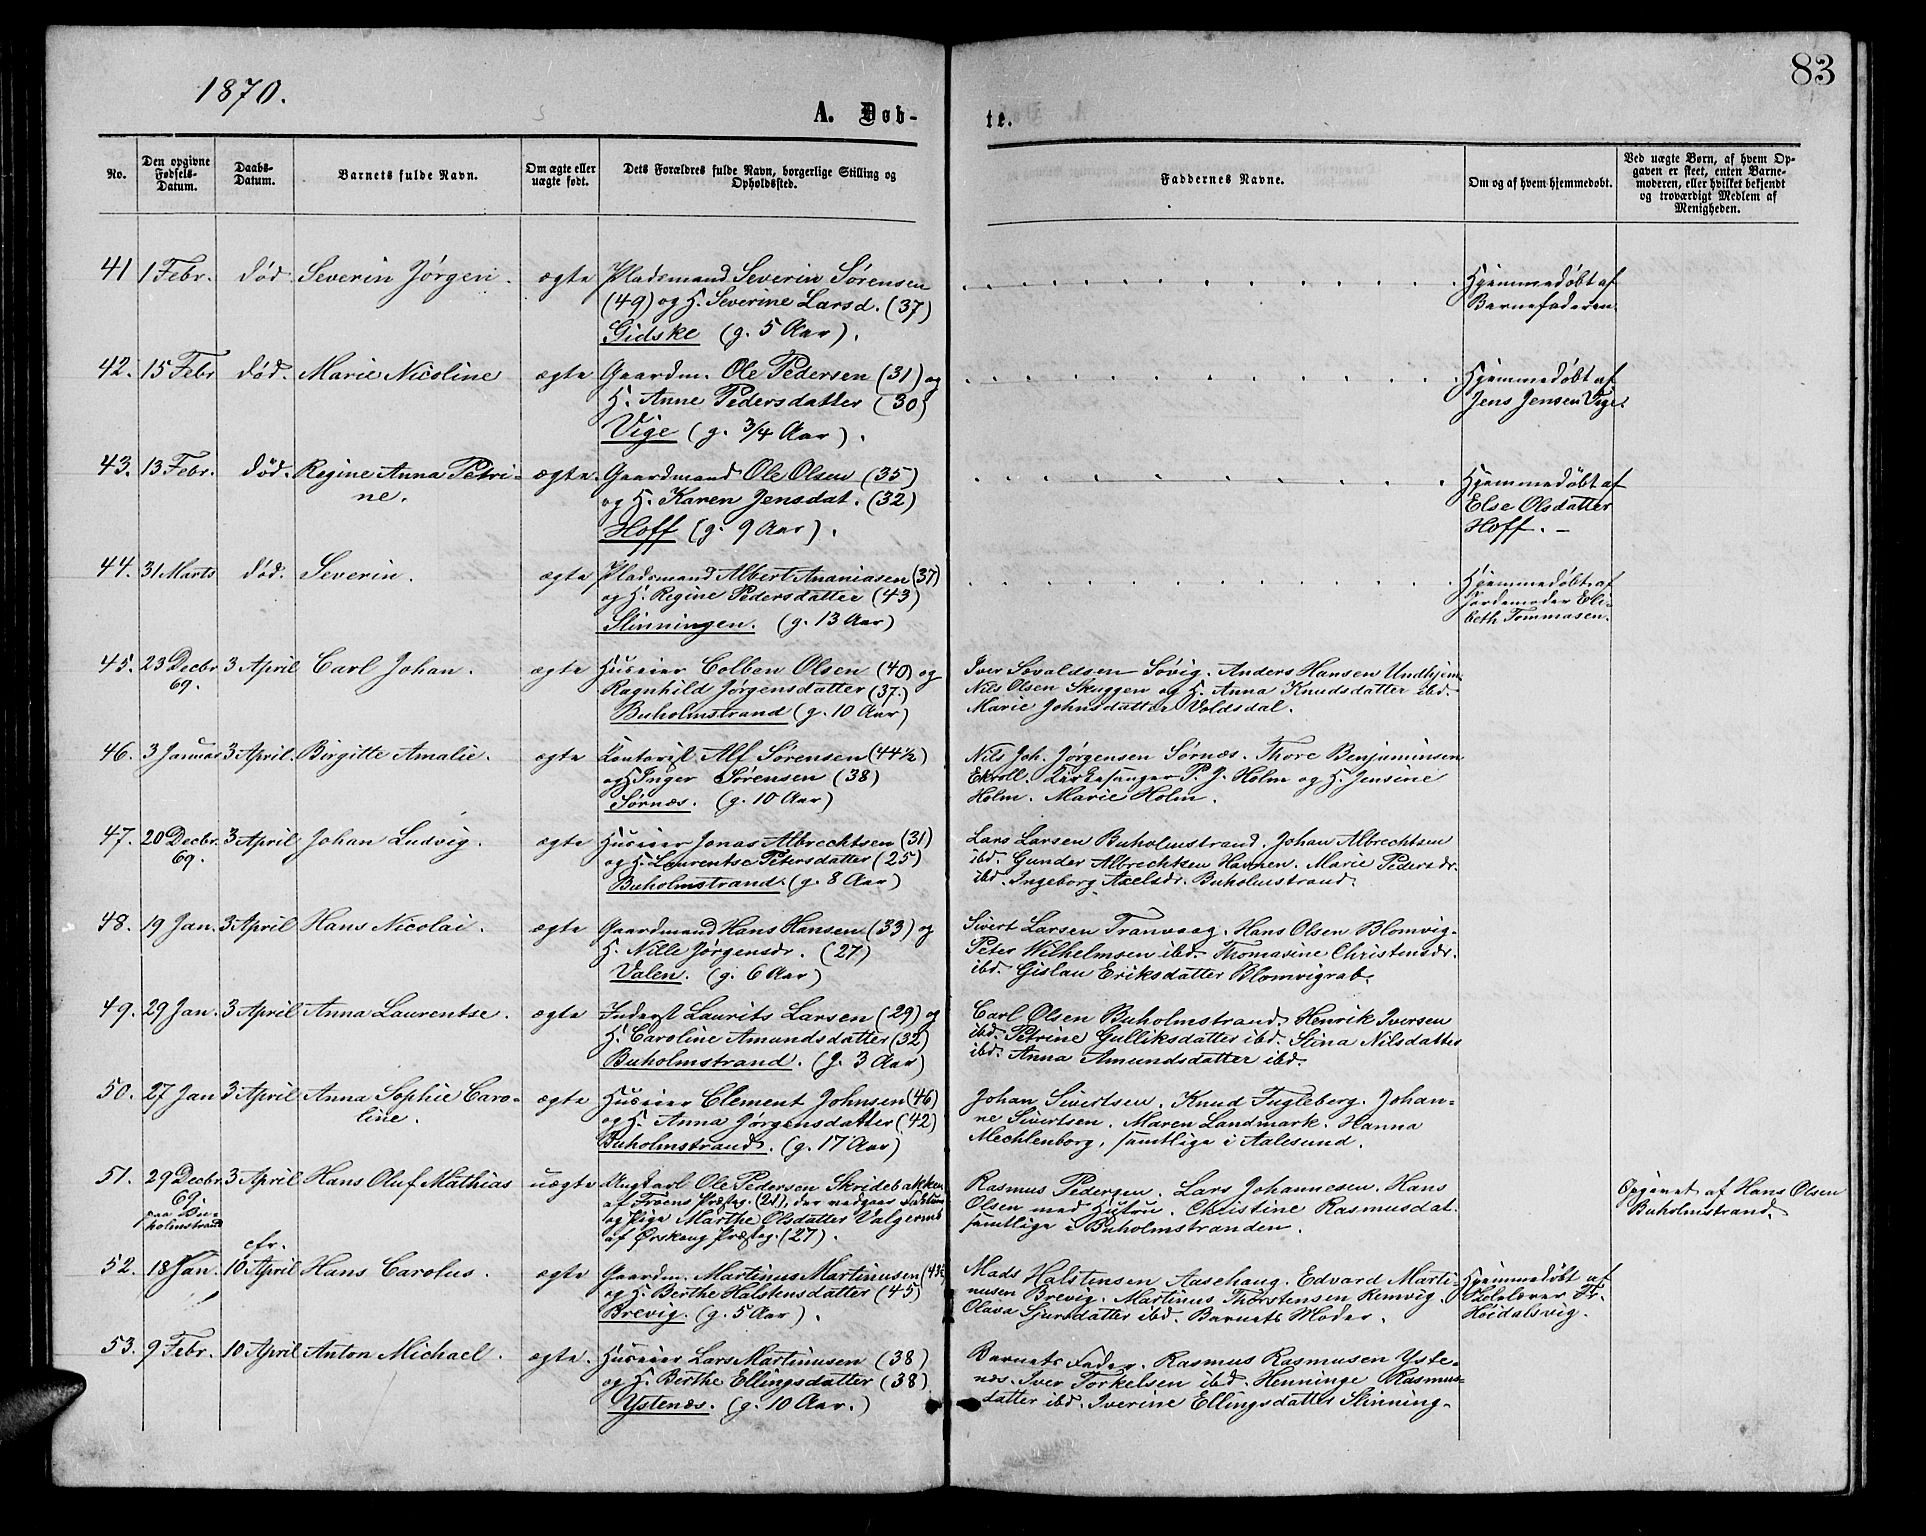 1870.
83
A. Døb-
te.
No.
Den opgivne Fødsels-Datum.
Daabs-Datum.
Barnets fulde Navn.
Om ægte eller uægte født.
Dets Forældres fulde Navn, borgerlige Stilling og Opholdssted.
Faddernes Navne.
Om og af hvem hjemmedøbt.
Ved uægte Børn, af hvem Op-
gaven er skeet, enten Barne-
moderen, eller hvilket bekjendt
og troværdigt Medlem af
Menigheden.
41 1 Febr. død Severin Jørgen. ægte Pladsmand Severin Sørensen Hjemmedøbt af
(49) og H. Severine Larsd. (37) Barnefaderen.
Gidske (g. 5 Aar).
42. 15 Febr død. Marie Nicoline ægte Gaardm. Ole Pedersen (31) og Hjemmedøbt af
H. Anne Pedersdatter (30) Jens Jensen Vige.
Vige (g. 3/4 Aar).
43. 13 Febr. død. Regine Anna Petri- ægte. Gaardmand Ole Olsen (35) Hjemmedøbt af
ne. og H. Karen Jensdat. (32) Else Olsdatter
Hoff (g. 9 Aar). Hoff. –
44. 31 Marts død. Severin. ægte Pladsmand Albert Ananiasen (37) Hjemmedøbt af
og H. Regine Pedersdatter (43) Jordemoder Eli-
Slinningen. (g. 13 Aar) beth Tommasen.
45. 23 Decbr. 3 April Carl Johan. ægte Huseier Colben Olsen (40) og Iver Sovaldsen Søvig. Anders Hansen Undhjem.
69. Ragnhild Jørgensdatter (37.) Nils Olsen Skuggen og H. Anna Knudsdatter ibd.
Buholmstrand (g. 10 Aar) Marie Johnsdatter Voldsdal.
46. 3 Januar 3 April. Birgitte Amalie. ægte Kontorist Alf Sørensen (44 1/2) Nils Joh. Jørgensen Sørnæs. Thore Benjaminsen
og H Inger Sørensen (38) Ekroll. Kirkesanger P. J. Holm og H. Jensine
Sørnæs. (g. 10 Aar) Holm. Marie Holm.
47. 20 Decbr. 3 April Johan Ludvig. ægte Huseier Jonas Albrechtsen (31) Lars Larsen Buholmstrand. Johan Albrechtsen
69. og H. Laurentse Petersdatter (25) ibd. Gunder Albrechtsen Havnen. Marie Pedersdr.
Buholmstrand. (g. 8 Aar) ibd. Ingeborg Axelsdr. Buholmstrand.
48. 19 Jan. 3 April Hans Nicolai. ægte Gaardmand Hans Hansen (33) og Sivert Larsen Tranvaag. Hans Olsen Blomvig.
H. Nille Jørgensdr. (27) Peter Wilhelmsen ibd. Thomasine Christensdr.
Valen. (g. 6 Aar) ibd. Gislau Eriksdatter Blomvigrab.
49. 29 Jan. 3 April Anna Laurentse. ægte Inderst Laurits Larsen (29) og Carl Olsen Buholmstrand. Henrik Iversen
H. Caroline Amundsdatter (32) ibd. Petrine Gulliksdatter ibd. Stina Nilsdatter
Buholmstrand. (g. 3 Aar) ibd. Anna Amundsdatter ibd.
50. 27 Jan 3 April Anna Sophie Caro- ægte Huseier Clement Johnsen (46) Johan Sivertsen. Knud Fugleberg. Johan-
line. og H. Anna Jørgensdatter (42) ne Sivertsen. Maren Landmark. Hanna
Buholmstrand. (g. 17 Aar) Mechlenborg, samtlige i Aalesund.
51. 29 Decbr. 3 April Hans Oluf Mathias uægte Ungkarl Ole Pedersen Skridebakken Rasmus Pedersen. Lars Johannesen. Hans Opgivet af Hans Olsen
69. af Præsteg. (21), der vedgaaer Olsen med Hustru. Christine Rasmusdat. Buholmstrand.
paa Bu- og Pige Marthe Olsdatter Valgermo samtlige i Buholmstranden.
holmstrand af Ørskoug Præsteg. (27).
cfr.
52. 18 Jan. 10 April Hans Carolus. ægte Gaardm. Martinus Martinusen Mads Halstensen Aasehaug. Edvard Marti- Hjemmedøbt af
og H. Berthe Halstensdatter (45) nusen Brevig. Martinus Thorstensen Remvig. Skolelærer
Brevig. (g. 5 Aar). Olava Sjursdatter ibd. Barnets Moder. Høidalsvig.
53. 9 Febr. 10 April Anton Michael. ægte. Huseier Lars Martinusen (38) Barnets Fader. Rasmus Rasmusen Yste-
og H. Berthe Ellingsdatter (38) næs. Iver Torkelsen ibd. Henninge Rasmus-
Ystenæs. (g. 10 Aar.) datter ibd. Iverine Ellingsdatter Slinning.